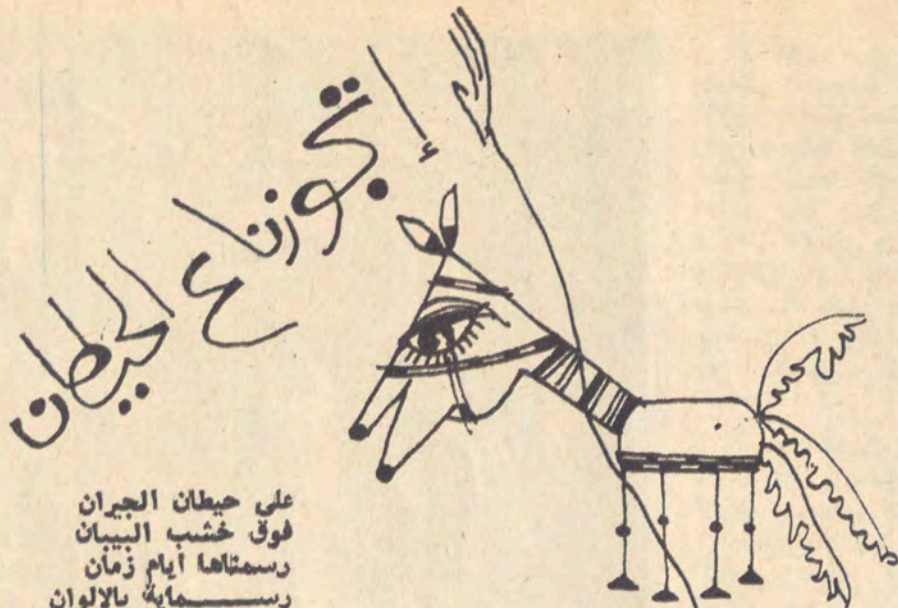 إتجوزنا ع الحيطان
على حيطان الجيران
فوق خشب البيبان
رسمتاها أيام زمان
رســـــماية بالالوان